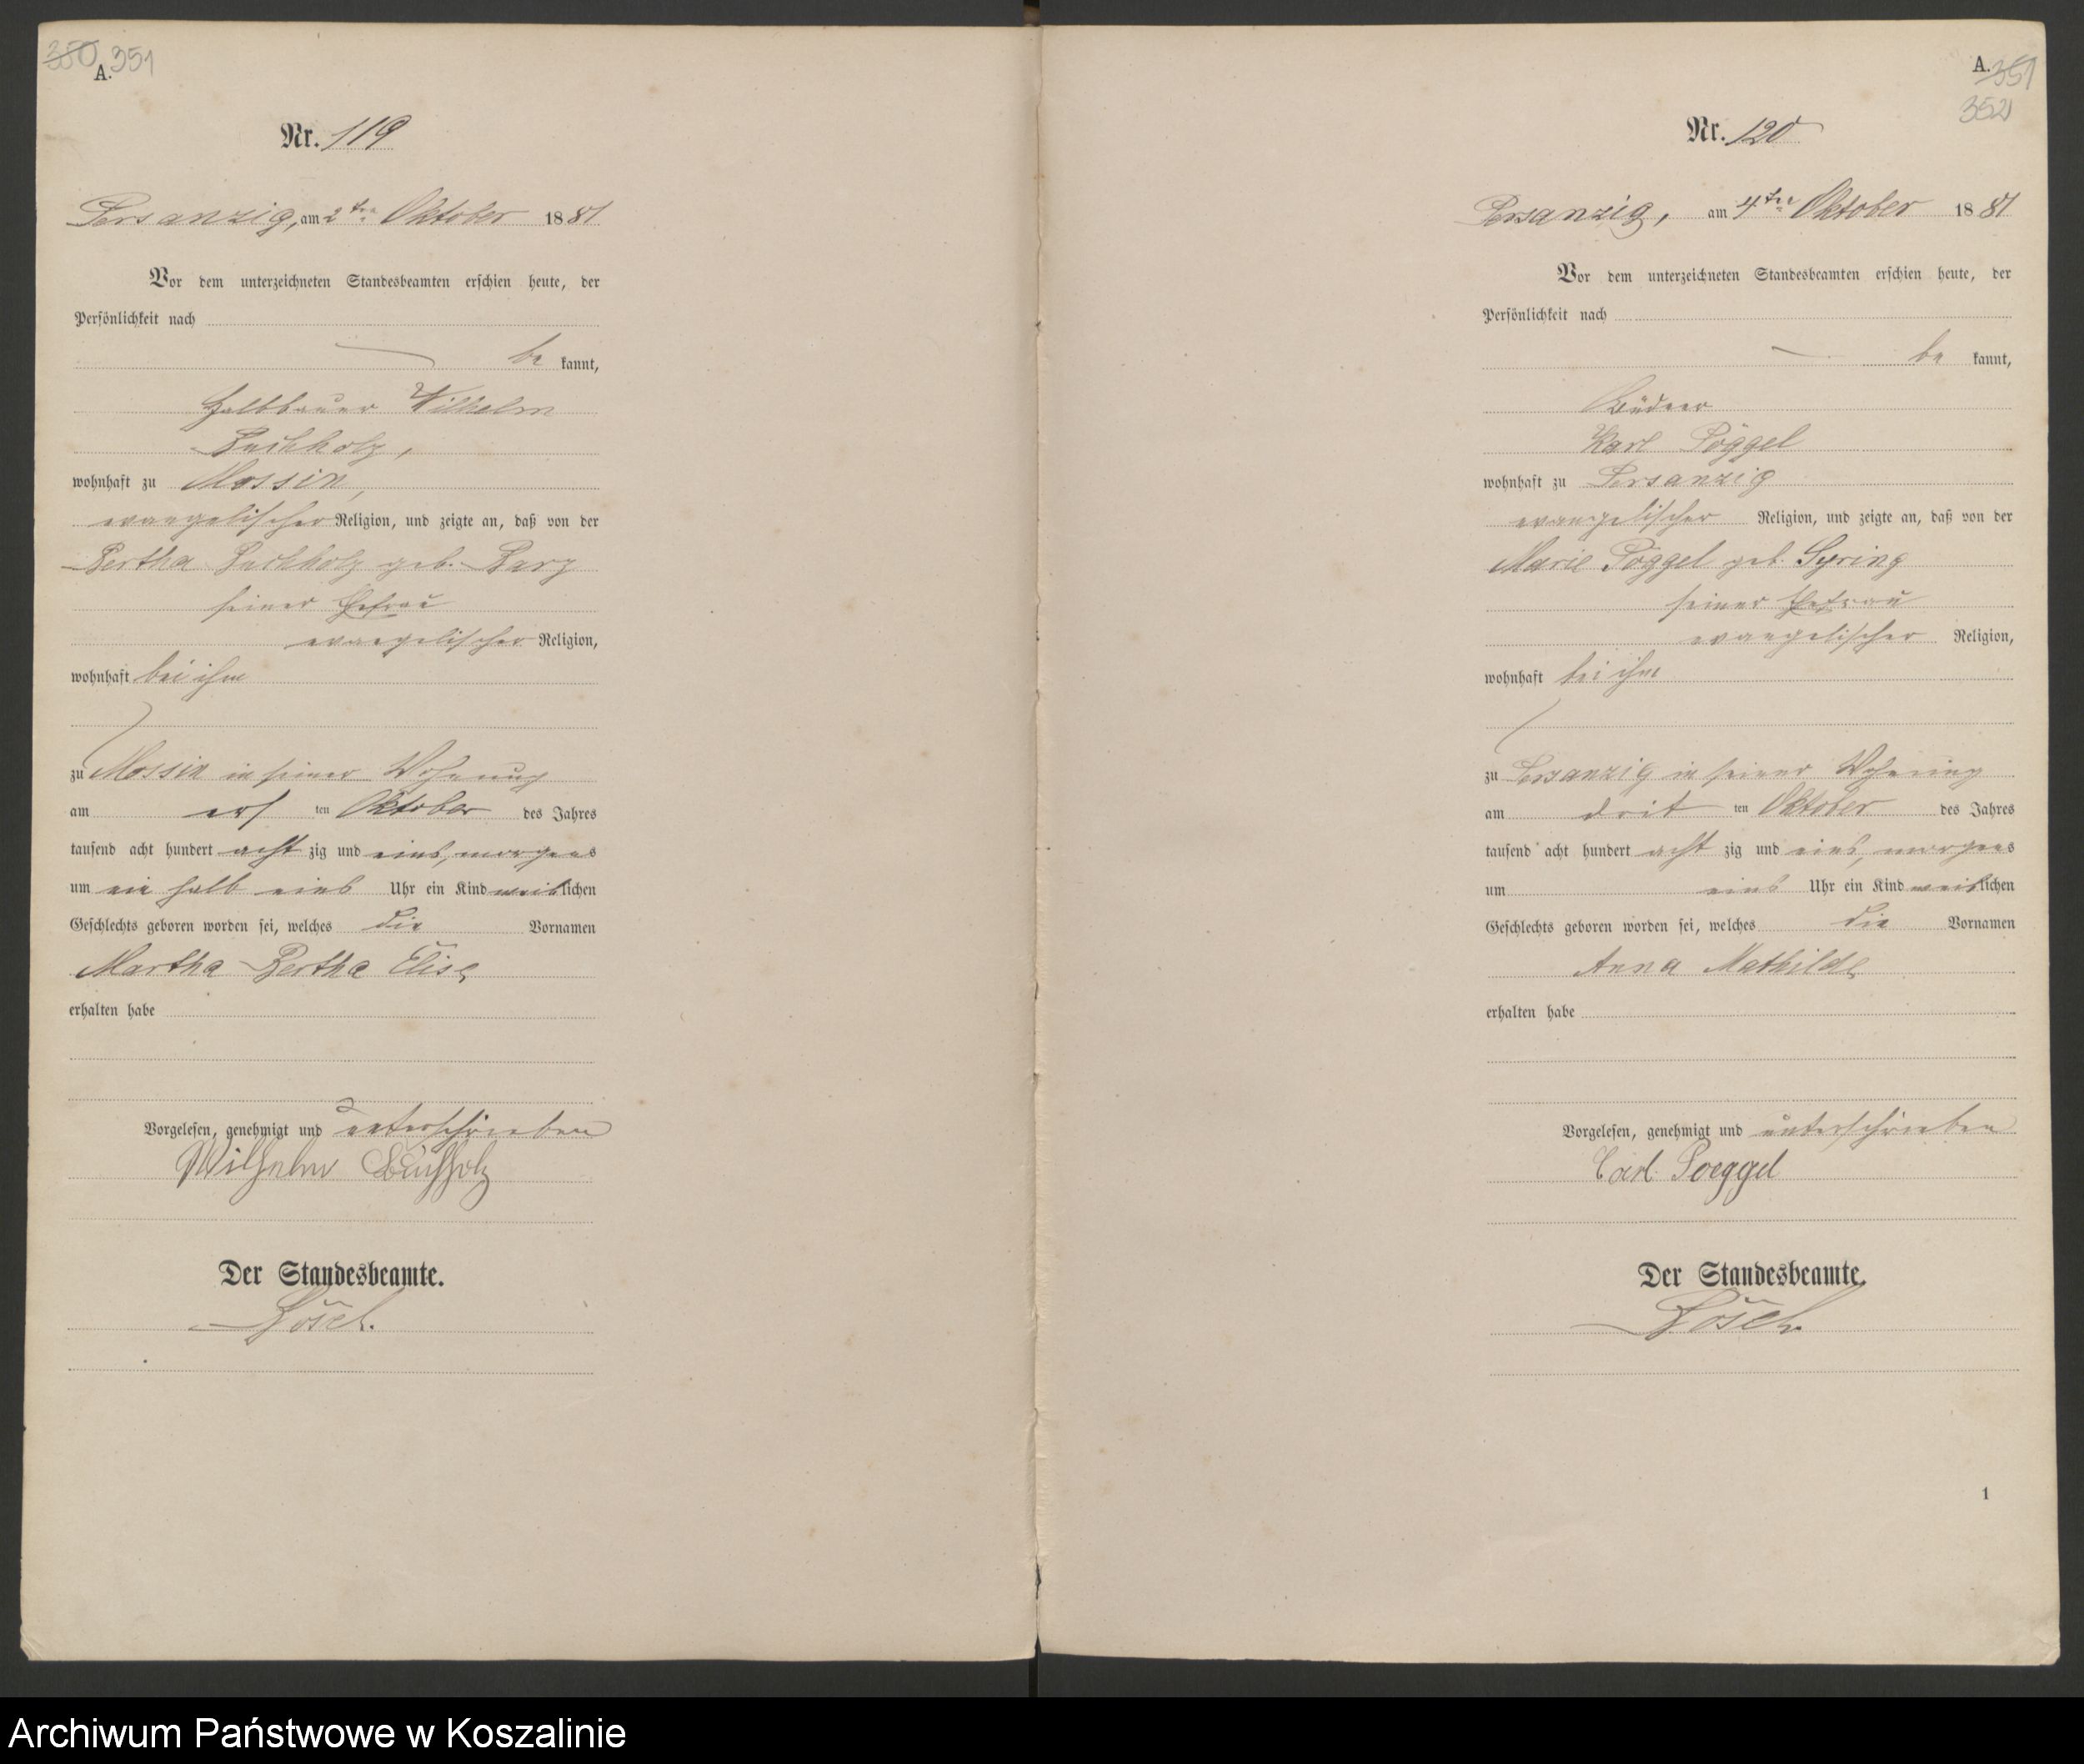 350 351
A.
Nr. 119
Persanzig, am 2ten Oktober 1881
Vor dem unterzeichneten Standesbeamten erschien heute, der
Persönlichkeit nach
be kannt,
Halbbauer Wilhelm
Buchholz,
wohnhaft zu Mossin,
evangelischer Religion, und zeigte an, daß von der
Bertha Buchholz geb. Barz
seiner Ehefrau
evangelischer Religion,
wohnhaft bei ihm
zu Mossin in seiner Wohnung
am ers ten Oktober des Jahres
tausend acht hundert acht zig und eins, morgens
um ein halb eins Uhr ein Kind weiblichen
Geschlechts geboren worden sei, welches die Vornamen
Martha Bertha Elise
erhalten habe
Vorgelesen, genehmigt und unterschrieben
Wilhelm Buchholz
Der Standesbeamte.
Bösel.
A. 351
352
Nr. 120
Persanzig, am 4ten Oktober 1881
Vor dem unterzeichneten Standesbeamten erschien heute, der
Persönlichkeit nach
be kannt,
Büdner
Karl Pöggel
wohnhaft zu Persanzig
evangelischer Religion, und zeigte an, daß von der
Marie Pöggel geb. Spring
seiner Ehefrau
evangelischer Religion,
wohnhaft bei ihm
zu Persanzig in seiner Wohnung
am drit ten Oktober des Jahres
tausend acht hundert acht zig und eins, morgens
um eins Uhr ein Kind weiblichen
Geschlechts geboren worden sei, welches die Vornamen
Anna Mathilde
erhalten habe
Vorgelesen, genehmigt und unterschrieben
Carl Poeggel
Der Standesbeamte.
Bösel.
1
Archiwum Państwowe w Koszalinie